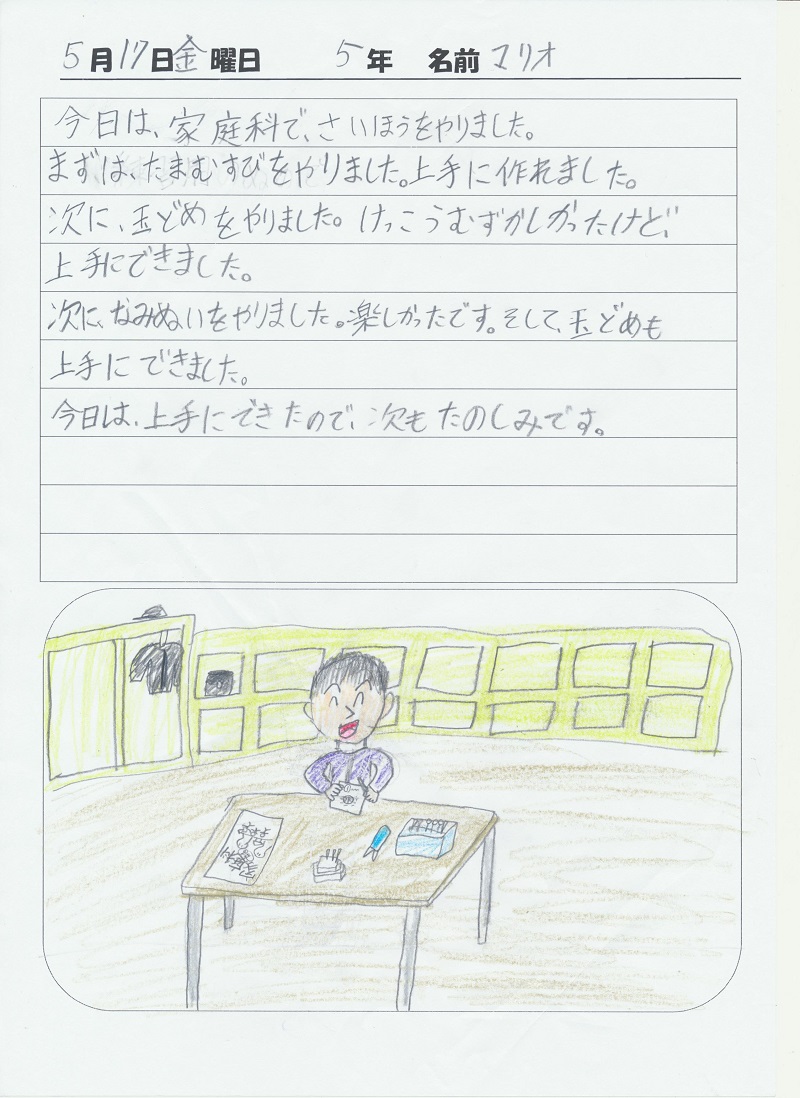 5月17日金曜日 5年 名前マリオ
今日は、家庭科で、さいほうをやりました。
まずは、たまむすびをやりました。上手に作れました。
次に、玉どめをやりました。けっこうむずかしかったけど、
上手にできました。
次に、なみぬいをやりました。楽しかったです。そして、玉どめも
上手にできました。
今日は、上手にできたので、次もたのしみです。